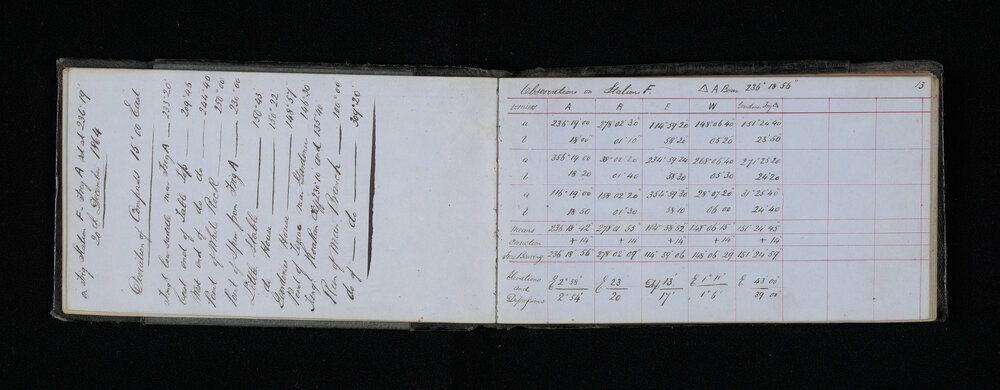 at Trig Station F. Trig A set at 236° 19'
20th December 1864
Deviation of Compass 15° 00 East
Trig A 233° 20'
East end of Table top 209° 45
West end of do do 244° 40
Point of White Rock 250° 00
Point of Spur from Trig A 236° 00
Little Stable 150° 45
do House 150° 22
Gardiners House 148° 57
Point of Spur near Gardiners 146° 30
Trig Station and 135° 40
Run of Main Beach 100° 00
do of do 309° 20'
Observations on Station F. △ A Bears 236° 18' 56"
13
A B E W
a 236° 19' 00 278° 02' 30" 114° 59' 20 148° 06' 40 151° 24' 40
18' 00 01' 10" 58' 20 05' 20 23' 50
a 356° 19' 00 38° 02' 20 234° 59' 24 268° 06' 40 271° 25' 20
18' 20 01' 40 58' 30 05' 30 24' 20
a 116° 19' 00 158° 02' 20 354° 59' 30 28° 07' 20 31° 25' 40
18' 50 01' 30 58' 10 06' 00 24' 40
Means 236 18 42 278 01 55 114° 58' 52 148 06 15 151 24 45
Correction + 14 + 14 + 14 + 14 + 14
True Bearing 236 18' 56 278 02 09 114° 59 06 148 06 29 151 24 59
Elevations and Depressions
E 2° 58' E 23 13' E 1° 11' E 43 00
2° 54' 20 17' 1° 6' 39 00